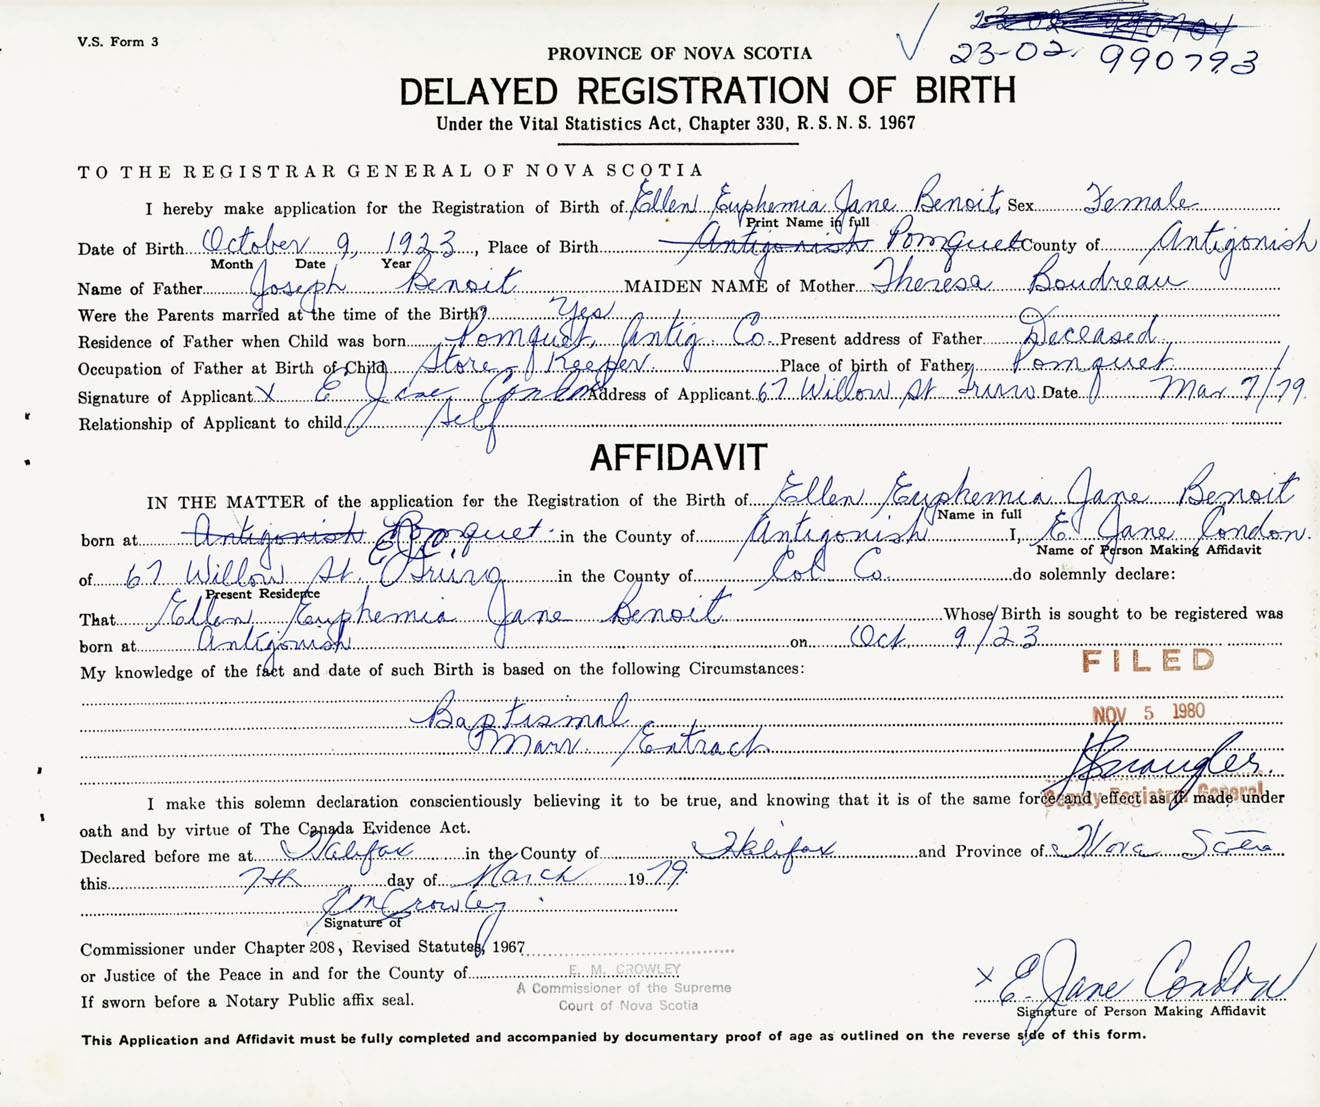 V.S. Form 3
23-02 990704
23-02. 990793
PROVINCE OF NOVA SCOTIA
DELAYED REGISTRATION OF BIRTH
Under the Vital Statistics Act, Chapter 330, R. S. N. S. 1967
TO THE REGISTRAR GENERAL OF NOVA SCOTIA
I hereby make application for the Registration of Birth of Ellen Euphemia Jane Benoit, Sex Female
Print Name in full
Date of Birth October 9, 1923, Place of Birth Antigonish Pomquet County of Antigonish
Month Date Year
Name of Father Joseph Benoit MAIDEN NAME of Mother Theresa Boudreau
Were the Parents married at the time of the Birth? Yes
Residence of Father when Child was born Pomquet, Antig. Co. Present address of Father Deceased
Occupation of Father at Birth of Child Store Keeper. Place of birth of Father Pomquet.
Signature of Applicant X E Jane Condon Address of Applicant 67 Willow St Truro Date Mar 7/79.
Relationship of Applicant to child Self
AFFIDAVIT
IN THE MATTER of the application for the Registration of the Birth of Ellen Euphemia Jane Benoit
Name in full
born at Antigonish Pomquet in the County of Antigonish I, E. Jane Condon.
EJC
Name of Person Making Affidavit
of 67 Willow St. Truro in the County of Col Co. do solemnly declare:
Present Residence
That Ellen Euphemia Jane Benoit Whose Birth is sought to be registered was
born at Antigonish on Oct 9/23
My knowledge of the fact and date of such Birth is based on the following Circumstances:
FILED
NOV 5 1980
Baptismal
Marr. Extract
Deputy Registrar General
I make this solemn declaration conscientiously believing it to be true, and knowing that it is of the same force and effect as if made under
oath and by virtue of The Canada Evidence Act.
Declared before me at Halifax in the County of Halifax and Province of Nova Scotia
this 7th day of March 1979.
EM Crowley
Signature of
Commissioner under Chapter 208, Revised Statutes, 1967
or Justice of the Peace in and for the County of
E. M. CROWLEY
A Commissioner of the Supreme
Court of Nova Scotia
If sworn before a Notary Public affix seal.
X E. Jane Condon
Signature of Person Making Affidavit
This Application and Affidavit must be fully completed and accompanied by documentary proof of age as outlined on the reverse side of this form.